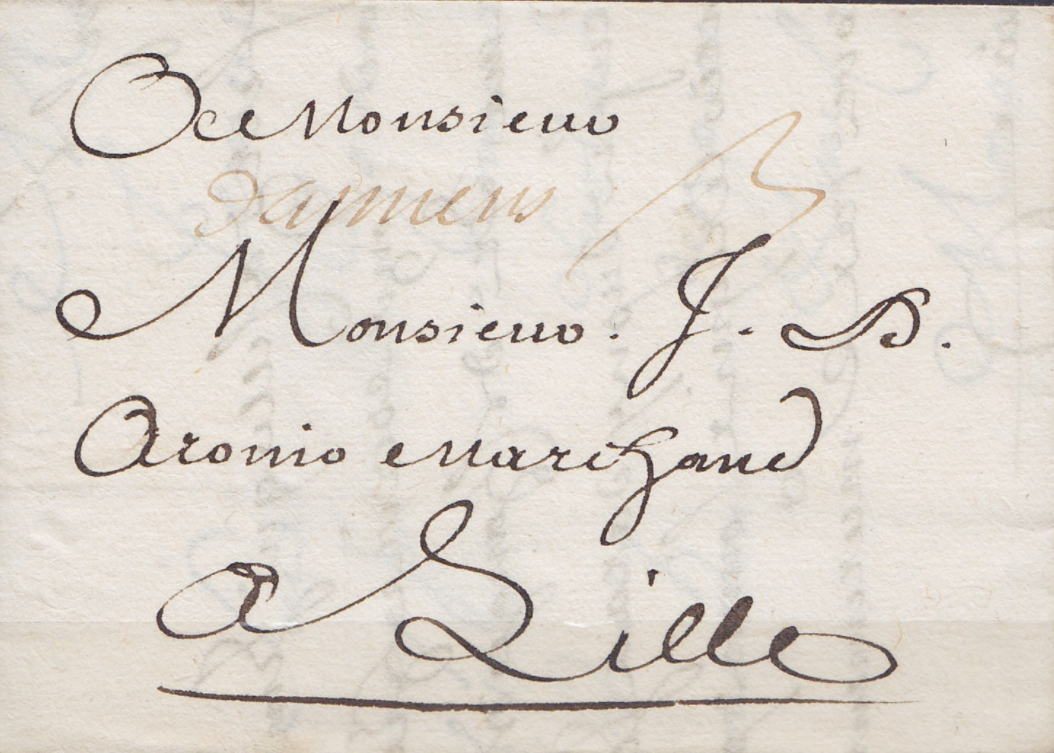 A Monsieur
Damiens 3
Monsieur. J. B.
Aronio Marchand
A Lille